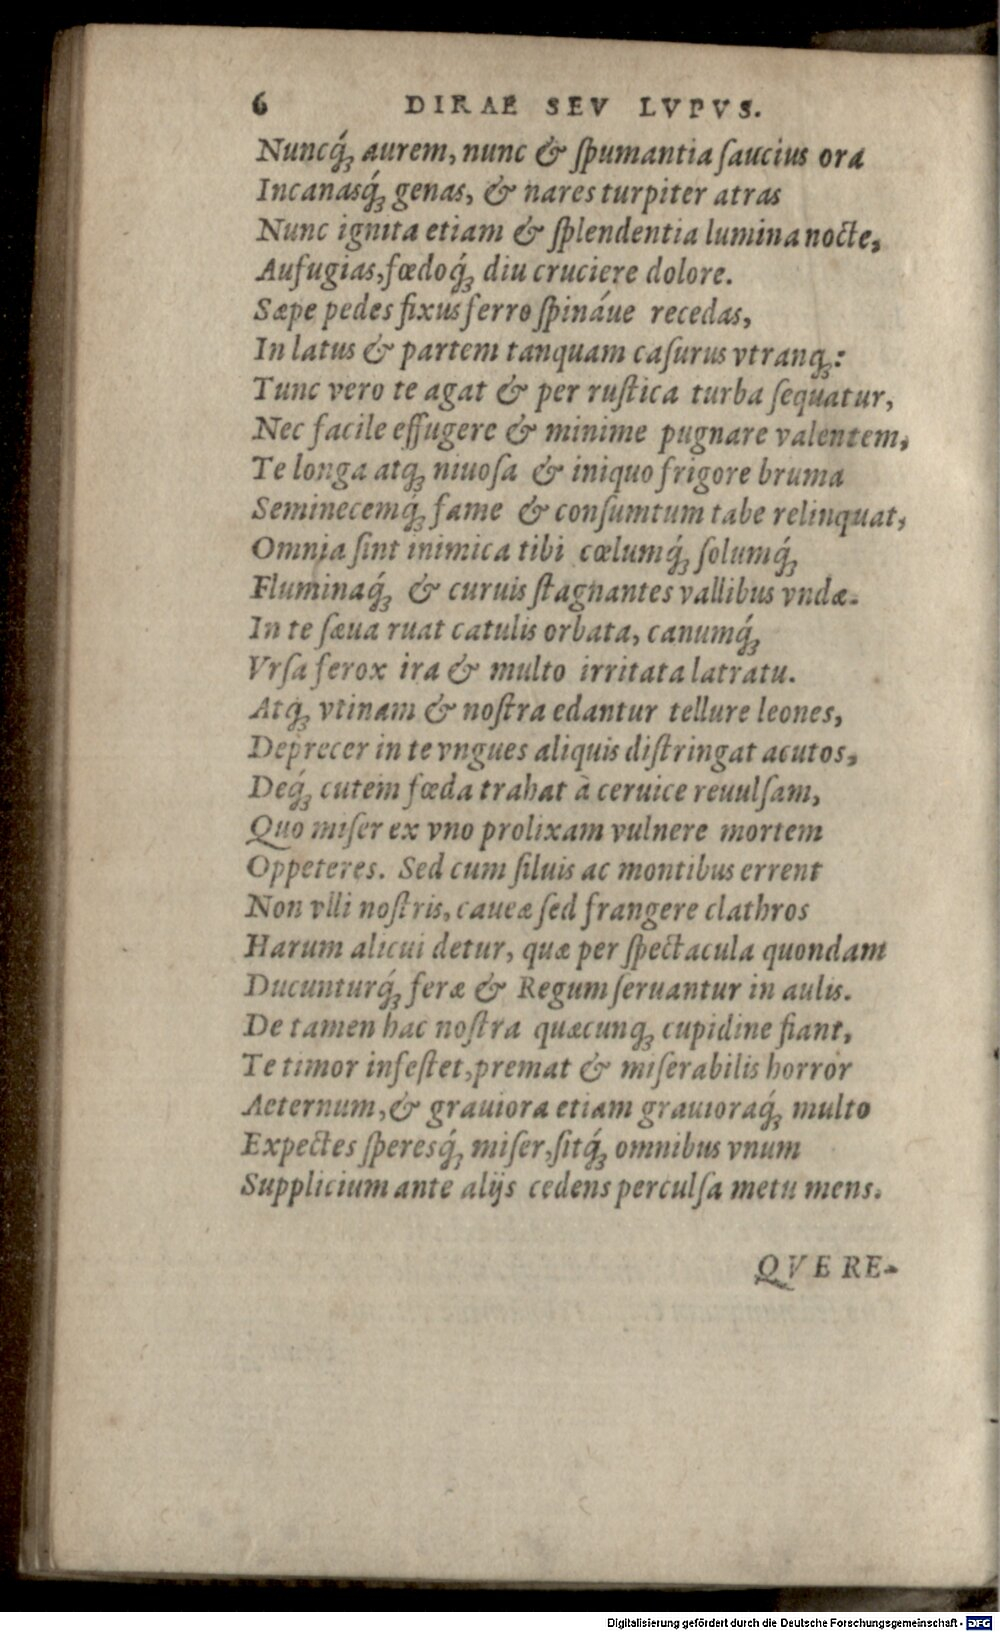 6 DIRAE SEV LVPVS.
Nuncq́ꝫ aurem, nunc & ſpumantia ſaucius ora
Incanasq́ꝫ genas, & nares turpiter atras
Nunc ignita etiam & ſplendentia lumina nocte,
Aufugias, fœdoq́ꝫ diu cruciere dolore.
Sæpe pedes fixus ferro ſpináue recedas,
In latus & partem tanquam caſurus vtranqꝫ:
Tunc vero te agat & per ruſtica turba ſequatur,
Nec facile effugere & minime pugnare valentem,
Te longa atqꝫ niuoſa & iniquo frigore bruma
Seminecemq́ꝫ fame & conſumtum tabe relinquat,
Omnia ſint inimica tibi cœlumq́ꝫ ſolumq́ꝫ
Fluminaq́ꝫ & curuis ſtagnantes vallibus vndæ.
In te ſæua ruat catulis orbata, canumq́ꝫ
Vrſa ferox ira & multo irritata latratu.
Atqꝫ vtinam & noſtra edantur tellure leones,
Deprecer in te vngues aliquis diſtringat acutos,
Deq́ꝫ cutem fœda trahat à ceruice reuulſam,
Quo miſer ex vno prolixam vulnere mortem
Oppeteres. Sed cum ſiluis ac montibus errent
Non vlli noſtris, caueæ ſed frangere clathros
Harum alicui detur, quæ per ſpectacula quondam
Ducunturq́ꝫ feræ & Regum ſeruantur in aulis.
De tamen hac noſtra quæcunqꝫ cupidine fiant,
Te timor infeſtet, premat & miſerabilis horror
Aeternum, & grauiora etiam grauioraq́ꝫ multo
Expectes ſperesq́ꝫ miſer, ſitq́ꝫ omnibus vnum
Supplicium ante alijs cedens perculſa metu mens.
QVERE-
Digitalisierung gefördert durch die Deutsche Forschungsgemeinschaft - DFG